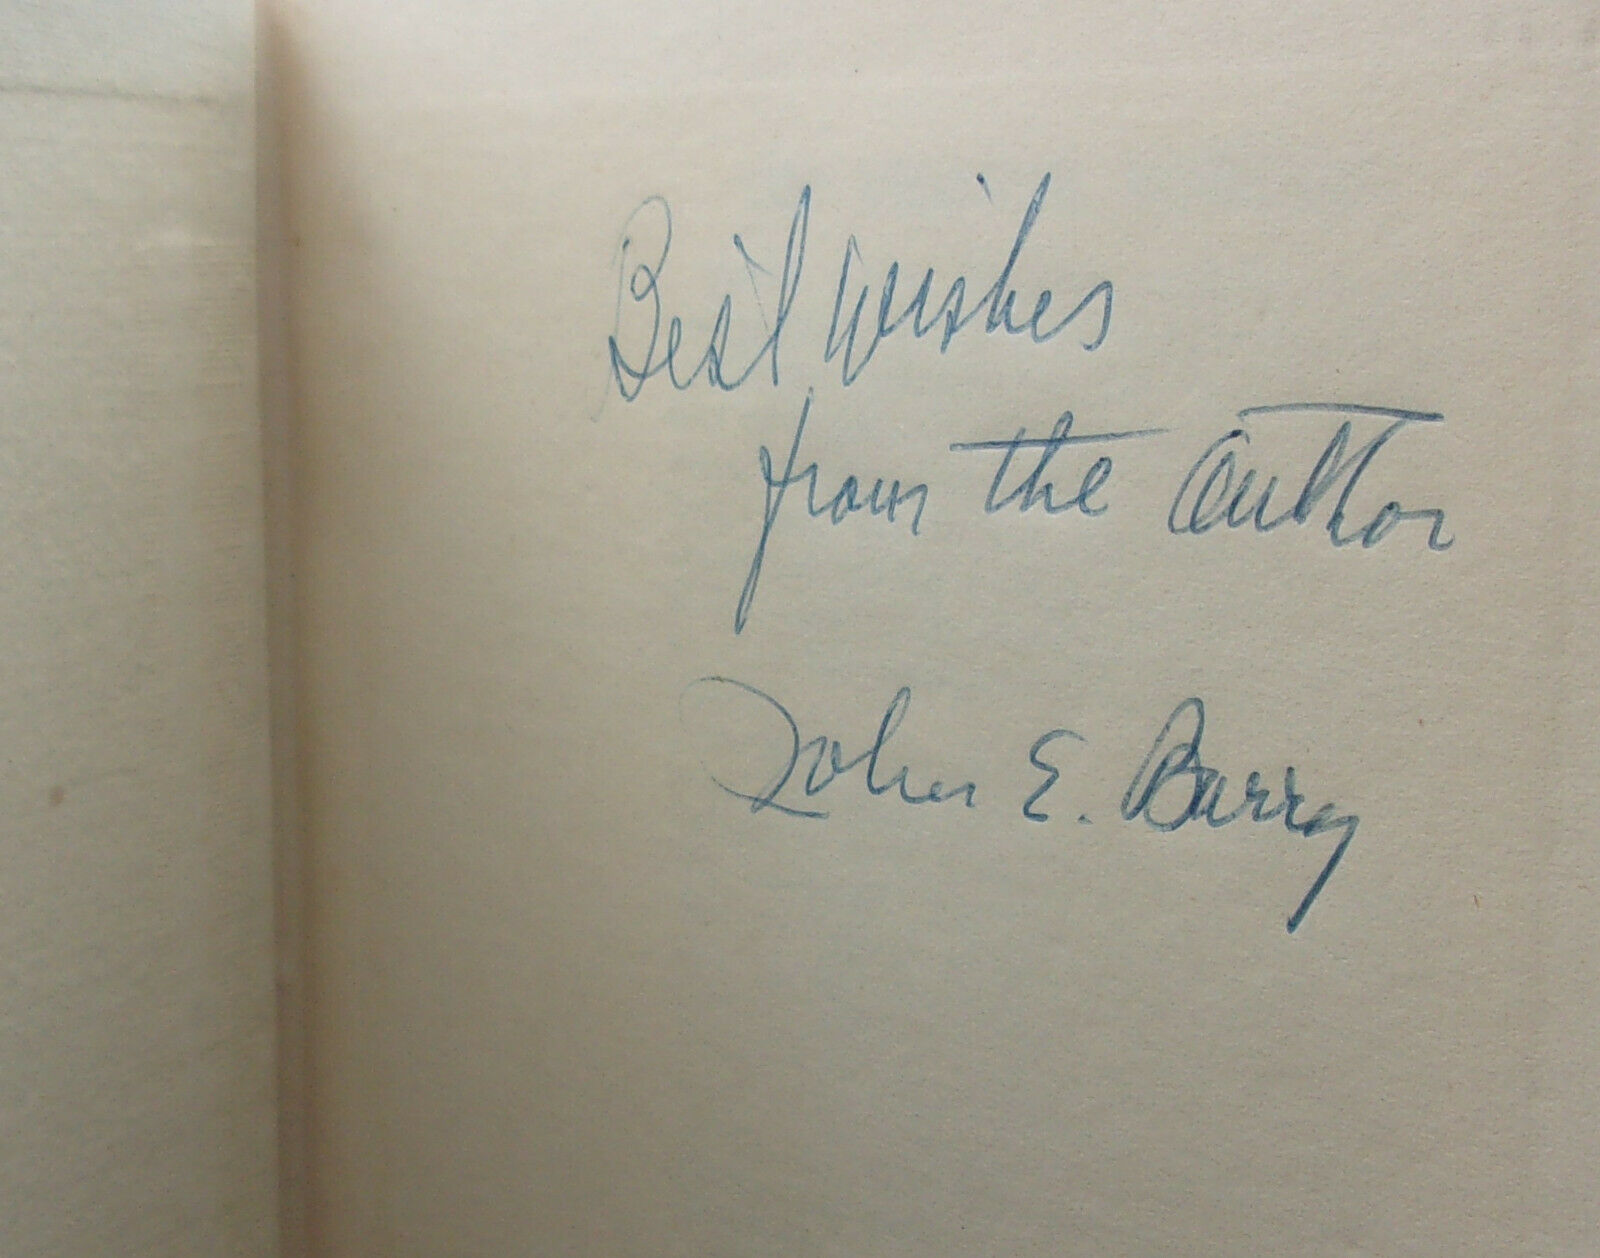 Best wishes
from the author
John E. Barry